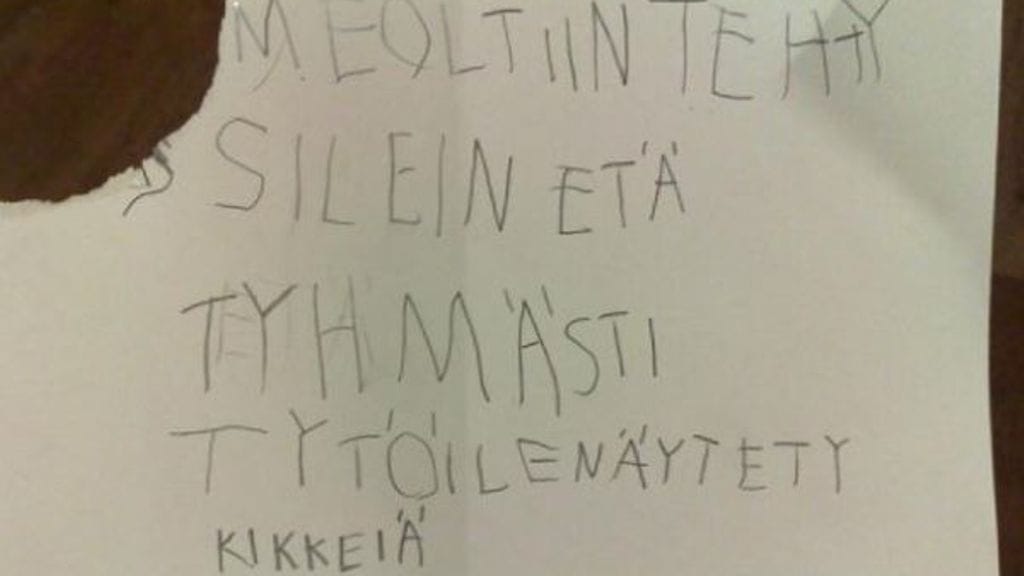 MEOLTIIN TEHTY
SILEIN ETÄ
TYHMÄSTI
TYTÖILENÄYTETY
KIKKEIÄ